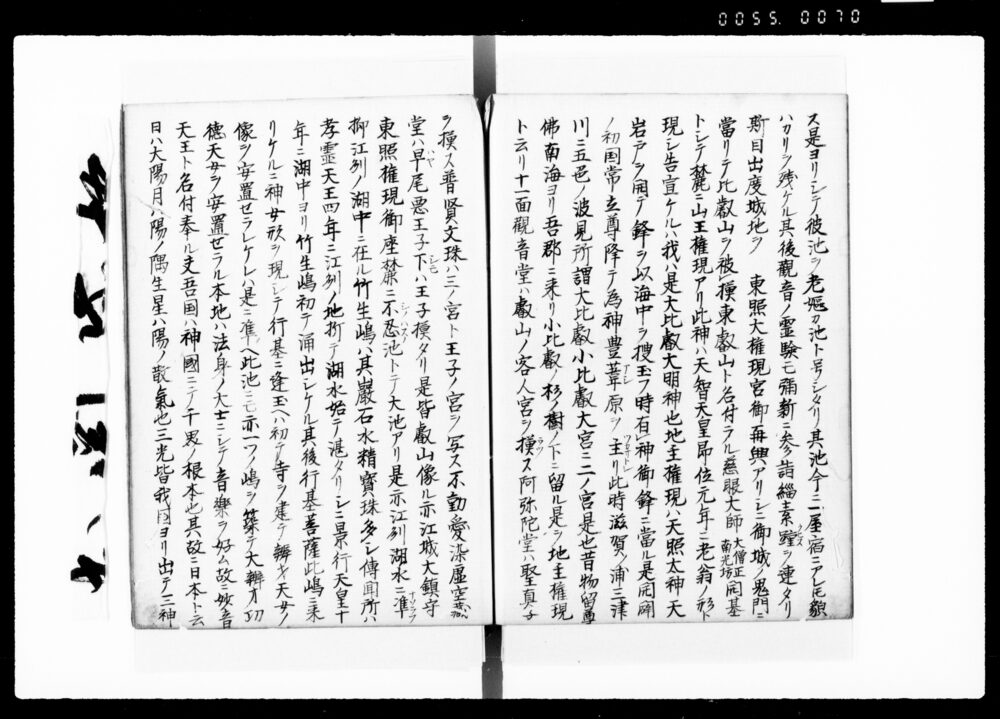 0055.0070
ス是ヨリシテ彼池ヲ老嫗カ池ト号シタリ其池今ニ屋宿ニアレ𪜈貌
ハカリヲ残ケル其後觀音ノ霊験モ弥新ニ参詣緇素蹤ヲ連タリ
斯目出度城地ヲ 東照大権現宮御再興アリシニ御城ノ鬼門ニ
當リテ比叡山ヲ被摸東叡山ト名付ラル慈眼大師大僧正南光坊開基
トシテ麓ニ山王権現アリ此神ハ天智天皇即位元年ニ老翁ノ形ト
現シ告宣ケルハ我ハ是大比叡大明神也地主権現ハ天照太神天
岩戸ヲ開テ鋒ヲ以海中ヲ捜玉フ時有神御鋒ニ當ル是開闢
ノ初国常立尊降テ為神豊葦原ノ主リ此時滋賀ノ浦三津
川ニ五色ノ波見所謂大比叡小比叡大宮ニ二ノ宮是也昔物留尊
佛南海ヨリ吾郡ニ来リ小比叡ノ杉ノ樹ノ下ニ留ル是ヲ地主権現
ト云リ十一面觀音堂ハ叡山ノ客人宮ヲ摸ス阿弥陀堂ハ聖真子
ヲ摸ス普賢文珠ハ三ノ宮ト王子ノ宮ヲ写ス不動愛染虚空蔵
堂ハ早尾悪王子下ハ王子摸タリ是皆叡山像ル亦江城大鎮守
東照権現御座禁ニ不忍池トテ大池アリ是亦江州湖水ニ準
抑江州ノ湖中ニ在ル竹生嶋ハ其巖石水精寳珠多シ傳聞所ハ
孝霊天王四年ニ江州ノ地折テ湖水始テ湛タリシニ景行天皇十
年ニ湖中ヨリ竹生嶋初テ涌出シケル其後行基菩薩此嶋ニ来
リケルニ神女形ヲ現シテ行基ニ逢玉ヘハ初テ寺ヲ建テ辨才天女ノ
像ヲ安置セラレケレハ是ニ準ヘ此池ニモ亦一ツノ嶋ヲ築テ大辨才功
徳天女ヲ安置セラル本地ハ法身ノ大士ニシテ音樂ヲ好ム故ニ妙音
天王ト名付奉ル支吾国ハ神國ニテ千界ノ根本也其故ニ日本ト云
日ハ大陽月ハ陽ノ隅生星ハ陽ノ散氣也三光皆我国ヨリ出テ三神